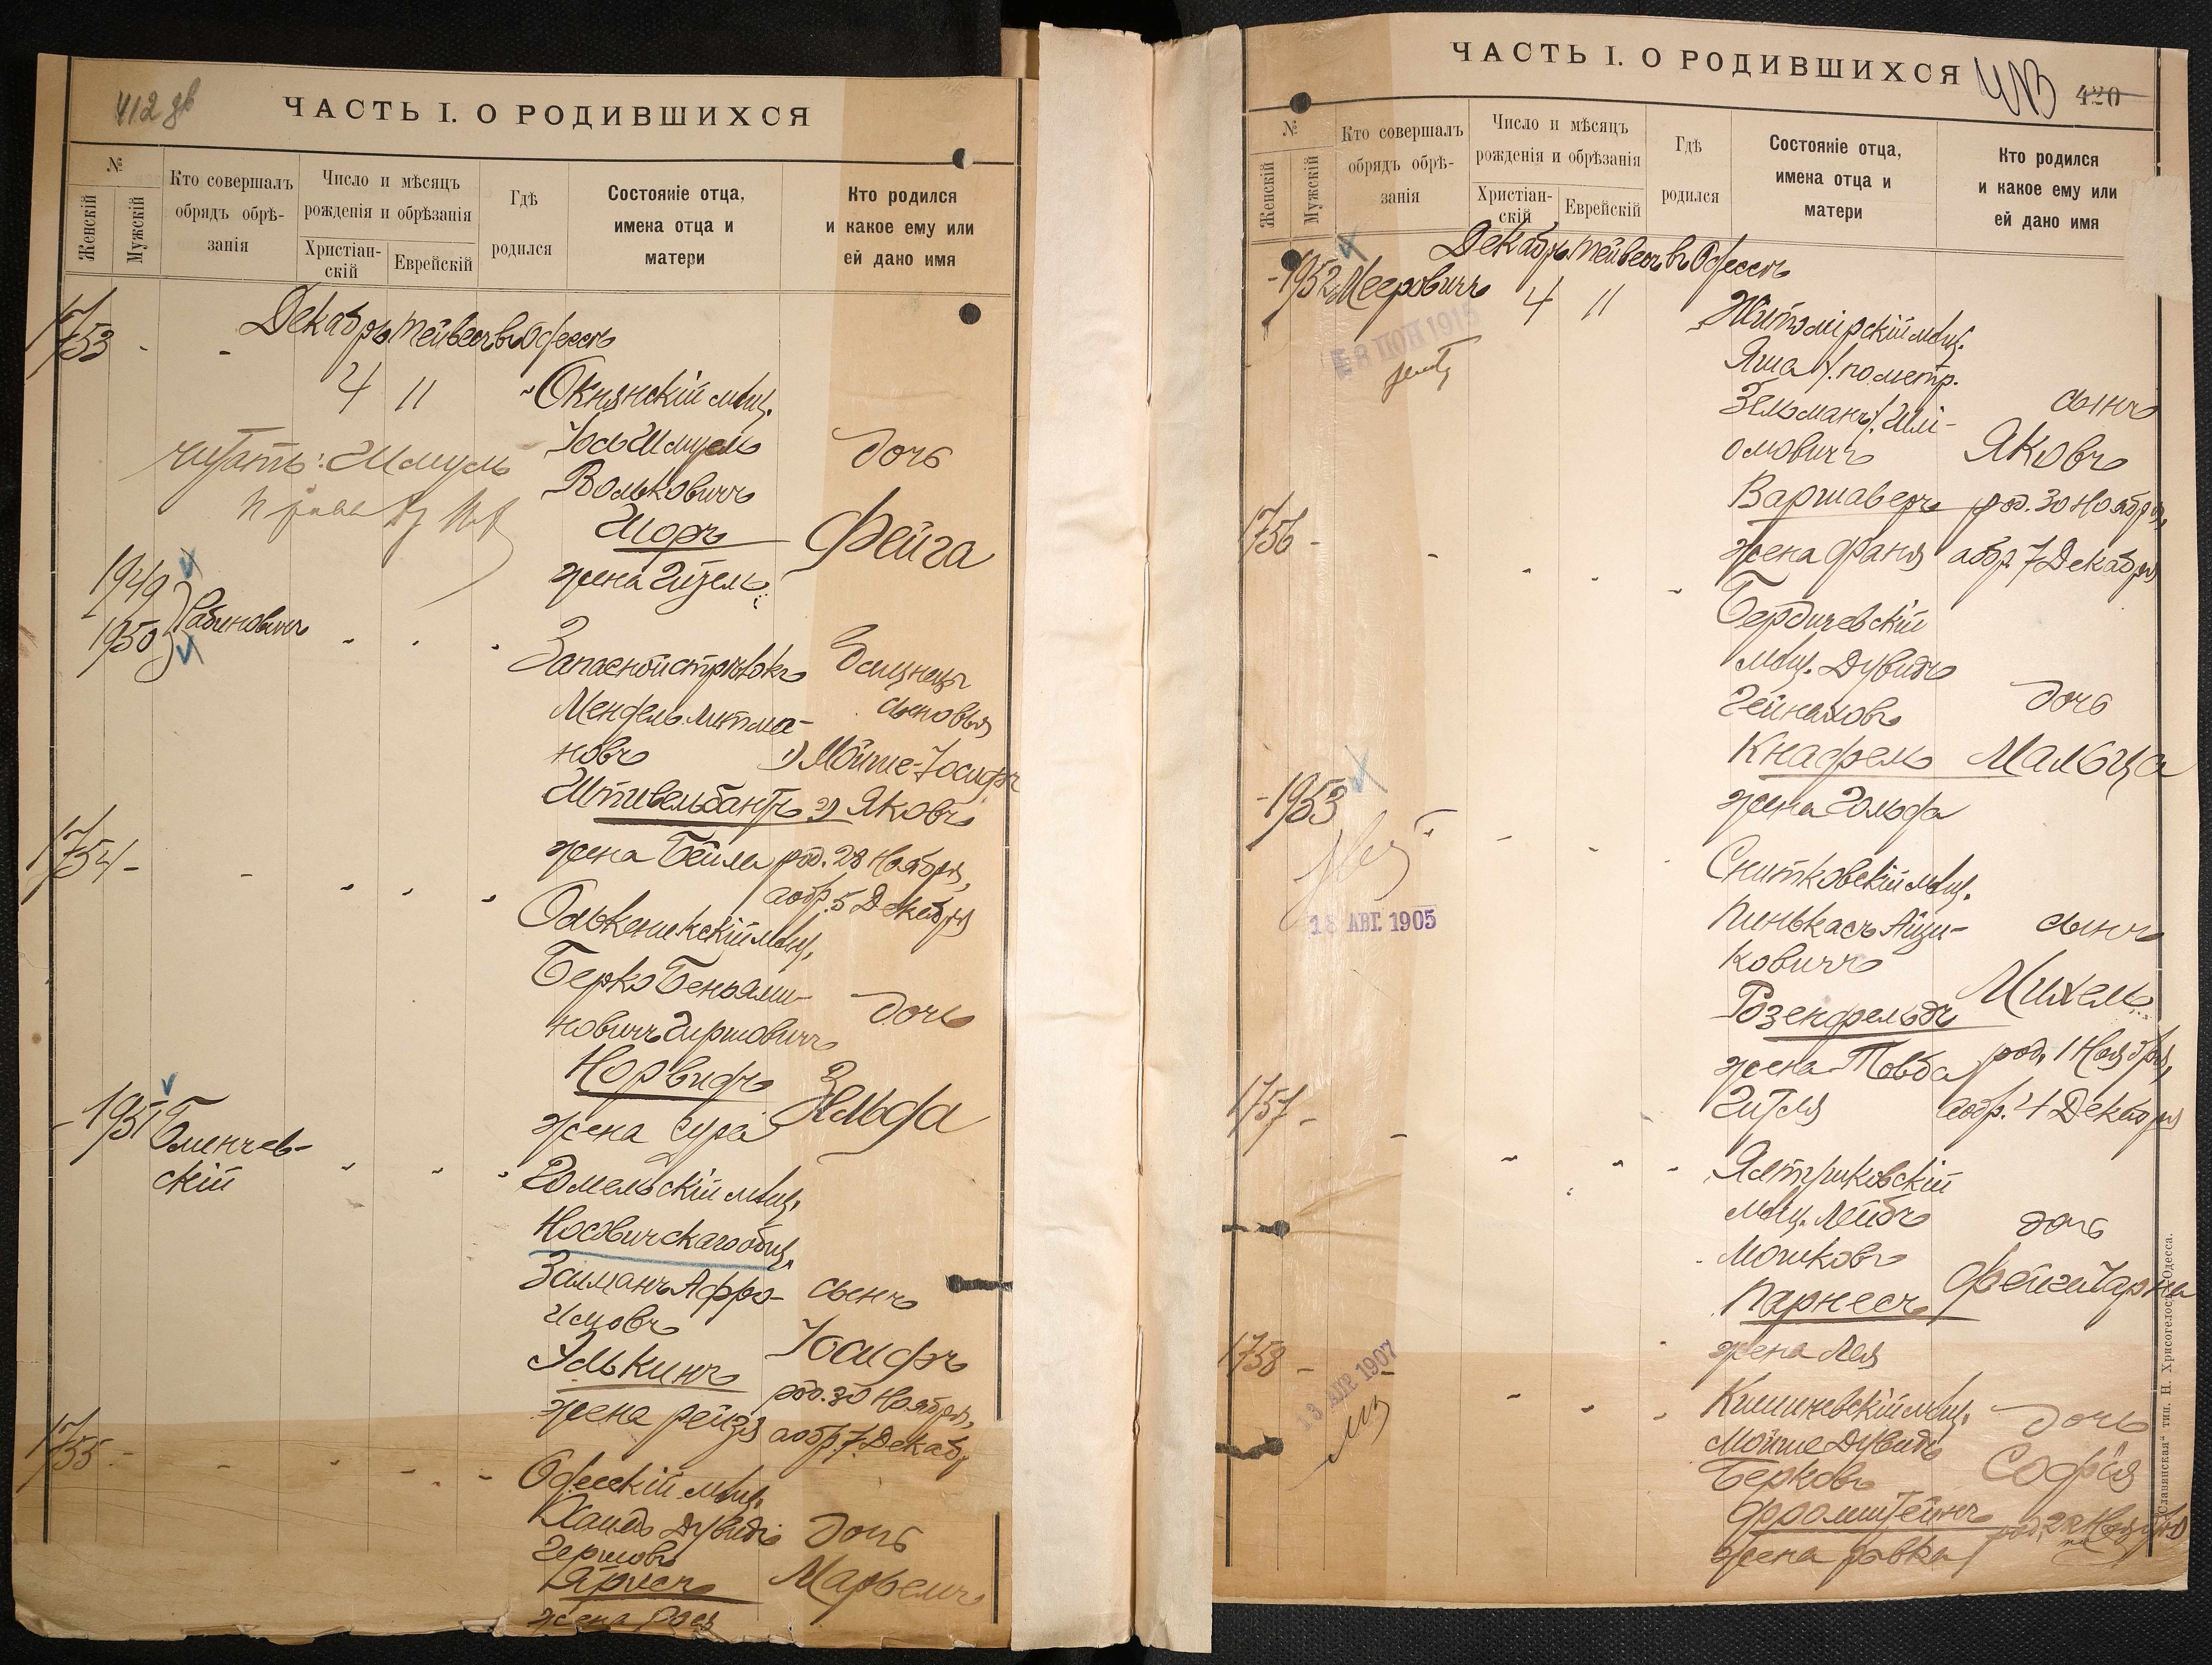 412 об
ЧАСТЬ I. О РОДИВШИХСЯ
№
Женскій
Мужскій
Кто совершалъ
обрядъ обрѣ-
занія
Число и мѣсяцъ
рожденія и обрѣзанія
Христіан-
скій
Еврейскій
Гдѣ
родился
Состояніе отца,
имена отца и
матери
Кто родился
и какое ему или
ей дано имя
1753 - -
Декабрь Тейвесъ въ Одессѣ
4 11
Окнянскій мѣщ.
Іось Шмуель
Вольковичъ
Шоръ
жена Гизель
дочь
Фейга
читать: Шмуль
1949
1950
Рабиновичъ
Запасной стрѣлокъ
Мендель Литма-
новъ
Штивельбантъ
жена Бейла
близнецы
сыновья
1) Мойше-Іосифъ
2) Яковъ
род. 28 Ноября,
аобр. 5 Декабря
1754 -
Олькеникскій мѣщ.
Берко Беньями-
новичъ Гиршовичъ
Норвидъ
жена Сура
дочь
Зельда
1951
Блинчев-
скій
Гомельскій мѣщ.
Носовичскаго общ.
Залманъ Афро-
имовъ
Элькинъ
жена Рейзя
сынъ
Іосифъ
род. 30 Ноября,
аобр. 7 Декабр
1755 -
Одесскій мѣщ.
Хаимъ Дувидъ
Гершовъ
жена Рося
дочь
ЧАСТЬ I. О РОДИВШИХСЯ
413
420
№
Женскій
Мужскій
Кто совершалъ
обрядъ обрѣ-
занія
Число и мѣсяцъ
рожденія и обрѣзанія
Христіан-
скій
Еврейскій
Гдѣ
родился
Состояніе отца,
имена отца и
матери
Кто родился
и какое ему или
ей дано имя
Декабрь Тейвесъ въ Одессѣ
- 1952 Мееровичъ 4 11
8 ІЮН 1915
Житомірскій мѣщ.
Яша /по метр.
Зельманъ/ Шлі-
омовичъ
Варшаверъ
жена Фаня
сынъ
Яковъ
род. 30 Ноября,
аобр. 7 Декабря
1756 -
Бердичевскій
мѣщ. Дувидъ
Гейнаховъ
Кнафель
жена Гольда
дочь
Мальца
- 1953
18 АВГ. 1905
Снитковскій мѣщ.
Пинькасъ Айзи-
ковичъ
Розенфельдъ
жена Товба
Гитля
сынъ
Михель
род. 1 Ноября,
аобр. 4 Декабря
1757 -
Ялтушковскій
мѣщ. Лейбъ
Мошковъ
Парнесъ
жена Лея
дочь
1758 -
13 АПР 1907
Кишиневскій мѣщ.
Мойше Дувидъ
Берковъ
Фромштейнъ
жена Ривка
дочь
Софія
род. 22 Ноября
„Славянская“ тип. Н. Хрисогелосъ, Одесса.